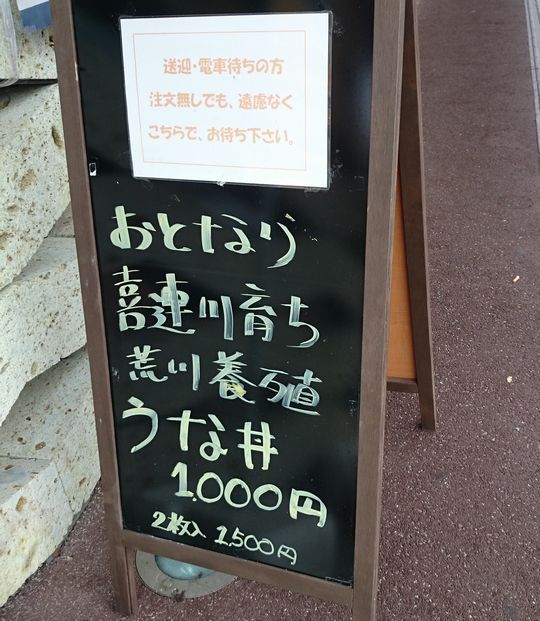 送迎・電車待ちの方
注文無しでも、遠慮なく
こちらで、お待ち下さい。
おとなり
喜連川育ち
荒川養殖
うな丼
1000円
2枚入 1,500円